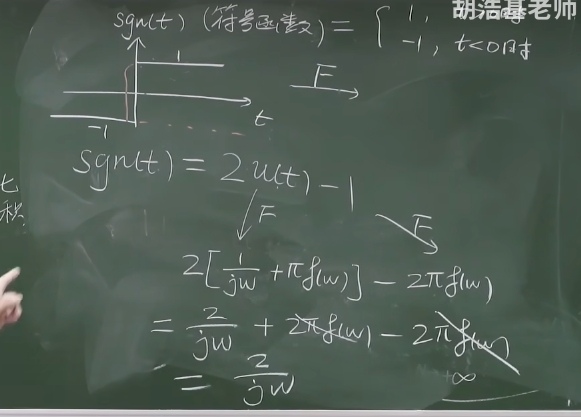 胡浩基老师
sgn(t) (符号函数) = { 1,
-1, t<0时
1
F
t
-1
sgn(t) = 2u(t) - 1
F
F
2[1/jω + πδ(ω)] - 2πδ(ω)
= 2/jω + 2πδ(ω) - 2πδ(ω)
+∞
= 2/jω
积